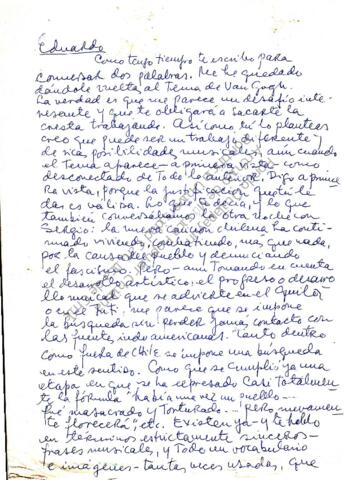 Eduardo
Como tengo tiempo te escribo para
conversar dos palabras. Me he quedado
dándole vuelta al tema de Van Gogh.
La verdad es que me parece un desafío inte-
resante y que te obligará a sacarte la
cresta trabajando. Así como tú lo planteas
creo que puede ser un trabajo diferente y
de ricas posibilidades musicales, aún cuando
el tema aparece a primera vista como
desconectado de todo lo anterior. Digo a prime
ra vista, porque la justificación que tú le
das es válida. Lo que te decía, y lo que
también conversábamos la otra noche con
Sergio: la nueva canción chilena ha conti-
nuado viviendo, combatiendo, mas que nada,
por la causa del pueblo y denunciando
el fascismo. Pero - aun tomando en cuenta
el desarrollo artístico, el progreso o desarro
llo musical que se advierte en el Quila
o Inti, me parece que se impone
la búsqueda sin perder jamás contacto con
las fuentes indoamericanas. Tanto dentro
como fuera de Chile se impone una búsqueda
en este sentido. Como que se cumplió ya una
etapa en que se ha expresado casi totalmen
te la fórmula "había una vez un pueblo-
fué masacrado y torturado... Pero nuevamen
te florecerá", etc. Existen ya - y te hablo
en términos estrictamente sinceros -
frases musicales, y todo un vocabulario
e imágenes - tantas veces usadas, que